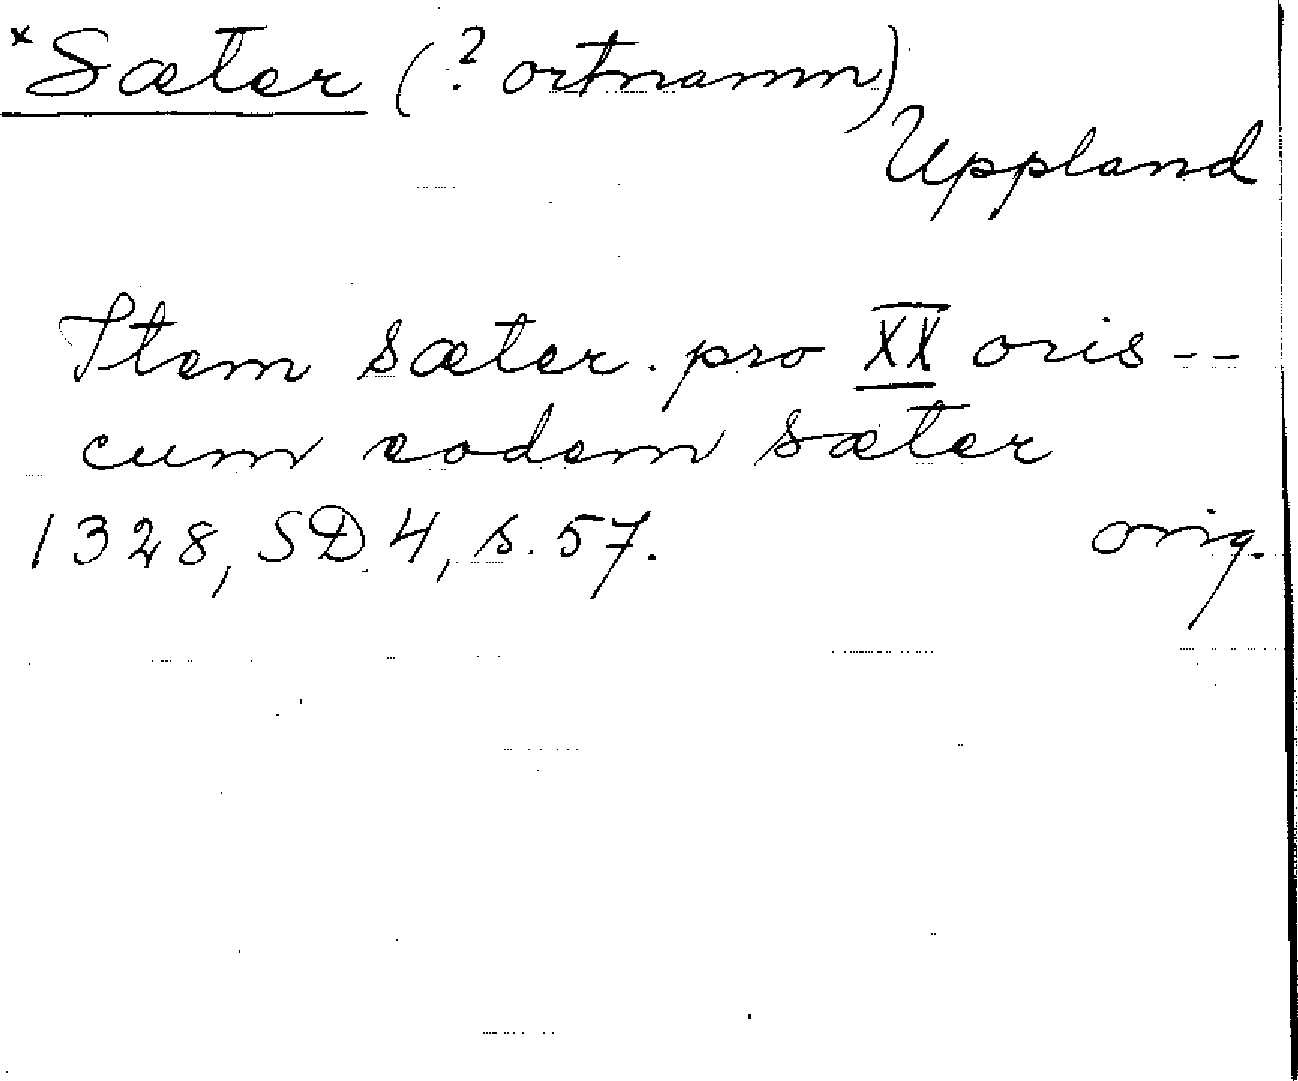 *Sæter (? ortnamn)
Uppland
Item sæter. pro XX oris --
cum eodem sæter
1328, SD 4, s. 57. orig.